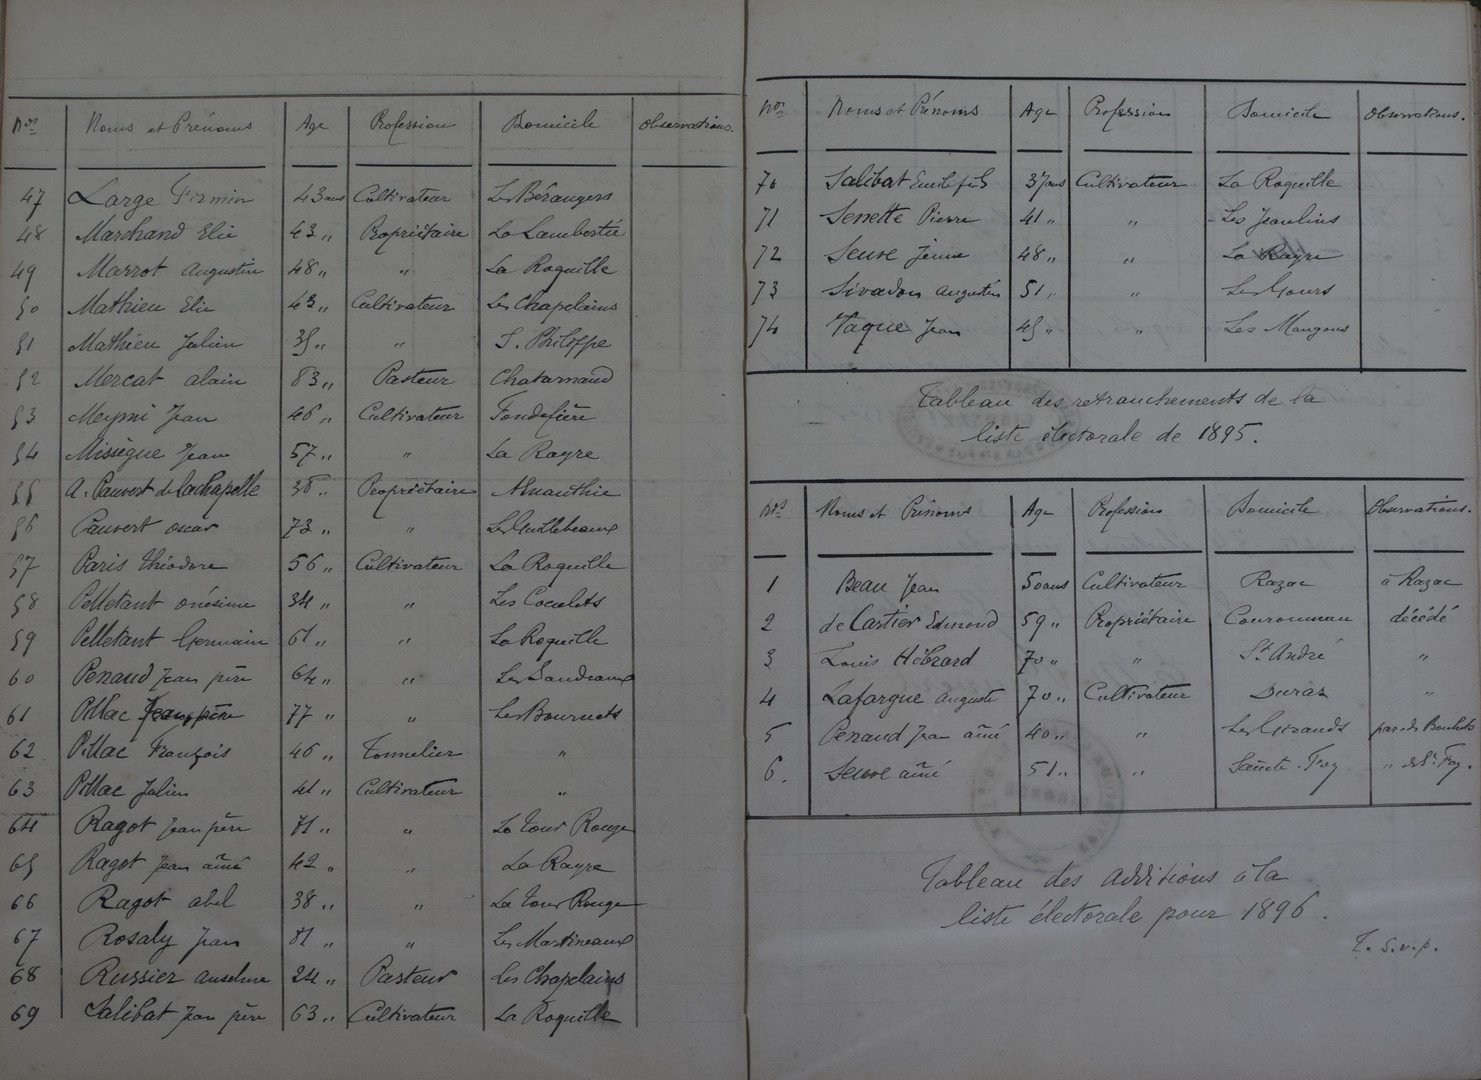 Nos Noms et Prénoms Age Profession Domicile Observations.
47 Large Firmin 43 ans Cultivateur Les Bérangers
48 Marchand Elie 43 " Propriétaire La Lambertie
49 Marzot Augustin 48 " " La Roquille
50 Mathieu Elie 43 " Cultivateur Les Chapelains
51 Mathieu Julien 35 " " S. Philippe
52 Mercat alain 83 " Pasteur
53 Jean 46 " Cultivateur Fondefière
54 Missègue Jean 57 " " La Rayre
55 A. Pauvert de Lachapelle 38 " Propriétaire
56 Pauvert oscar 73 " "
57 Paris théodore 56 " Cultivateur La Roquille
58 Pelletant onésime 34 " " Les
59 Pelletant Germain 61 " " La Roquille
60 Penaud Jean père 64 " "
61 Pillac Jean père 77 " " Les Bournets
62 Pillac François 46 " Tonnelier "
63 Pillac Julien 41 " Cultivateur "
64 Ragot Jean père 71 " " La tour Rouge
65 Ragot Jean aîné 42 " " La Rayre
66 Ragot abel 38 " " La tour Rouge
67 Rosaly Jean 81 " " Les Martineaux
68 Russier anselme 24 " Pasteur Les Chapelains
69 Salibat Jean père 63 " Cultivateur La Roquille
Nos Noms et Prénoms Age Profession Domicile Observations.
70 Salibat Emile fils 37 ans Cultivateur La Roquille
71 Senette Pierre 41 " " Les Jeanlins
72 Seuve Jeune 48 " " La Rayre
73 Sivadon augustin 51 " " Les Gours
74 Taque Jean 45 " " Les Mangons
Tableau des retranchements de la
liste électorale de 1895.
Nos Noms et Prénoms Age Profession Domicile Observations.
1 Beau Jean 50 ans Cultivateur Razac à Razac
2 de Cartier Edmond 59 " Propriétaire Couronneau décédé
3 Louis Hébrard 70 " " St André "
4 Lafargue auguste 70 " Cultivateur Duras "
5 Penaud Jean aîné 40 " " Les Girauds
6. Seuve aîné 51 " " Sainte-Foy " de Ste Foy.
Tableau des additions à la
liste électorale pour 1896.
T. s.v.p.